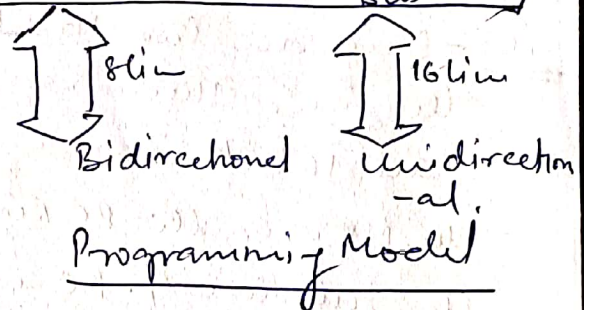 8 lin 16 lin
Bidirectional Unidirection
-al.
Programming Model